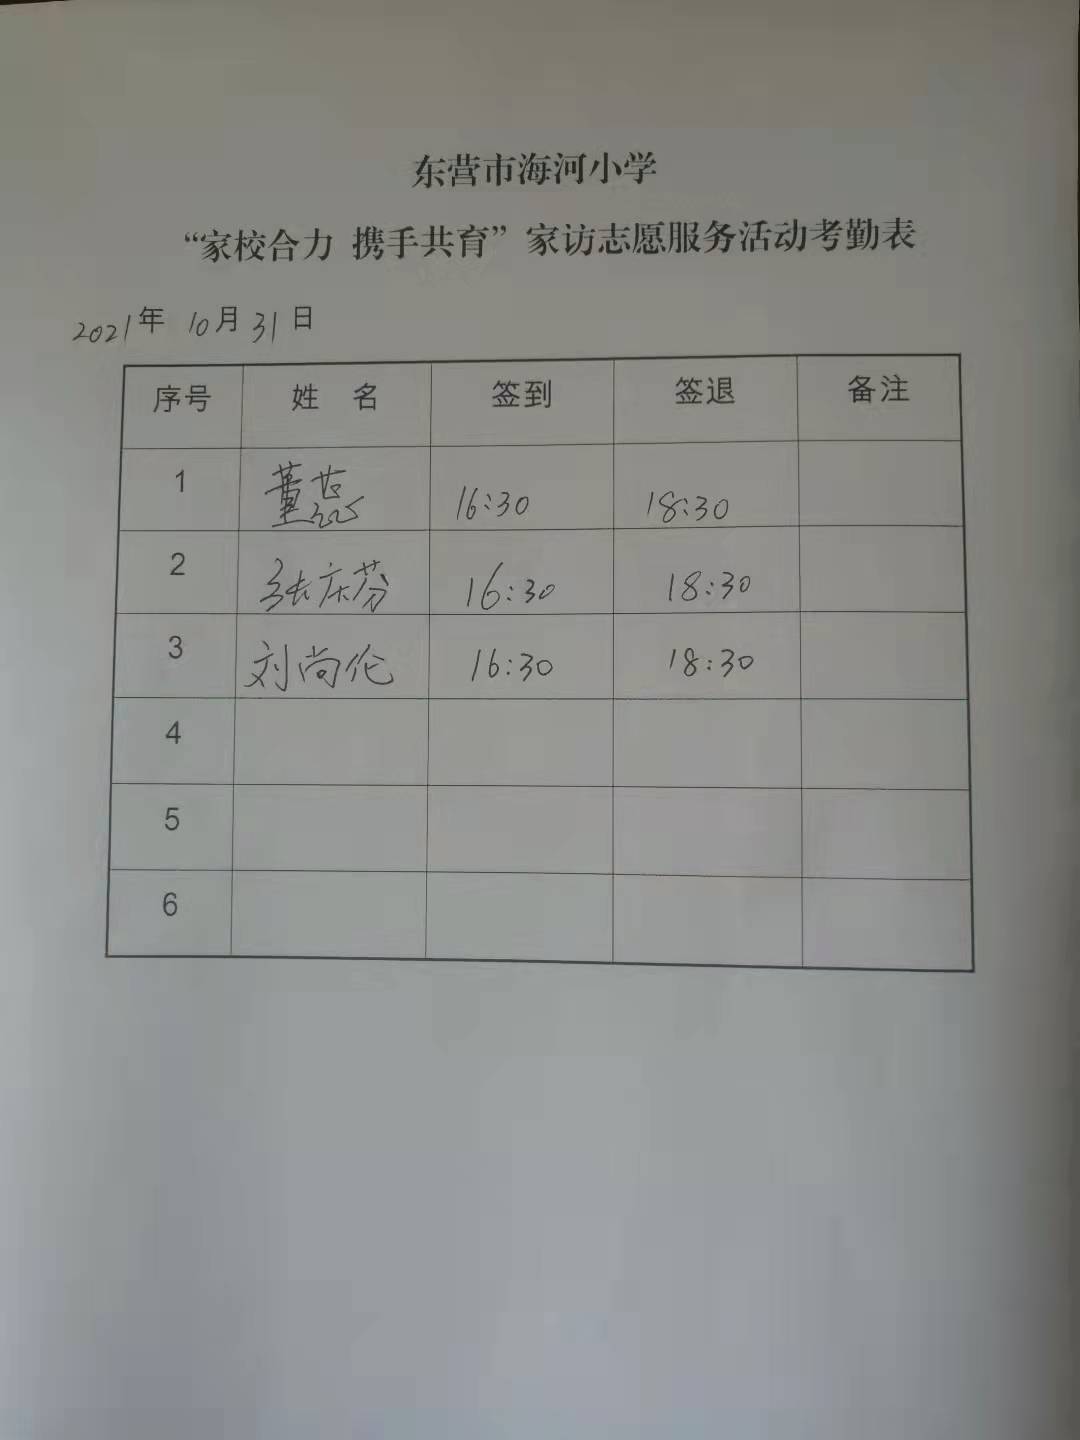 东营市海河小学
“家校合力 携手共育”家访志愿服务活动考勤表
2021年 10月31日
序号 姓 名 签到 签退 备注
1 董蕊 16:30 18:30
2 张庆芬 16:30 18:30
3 刘尚伦 16:30 18:30
4
5
6